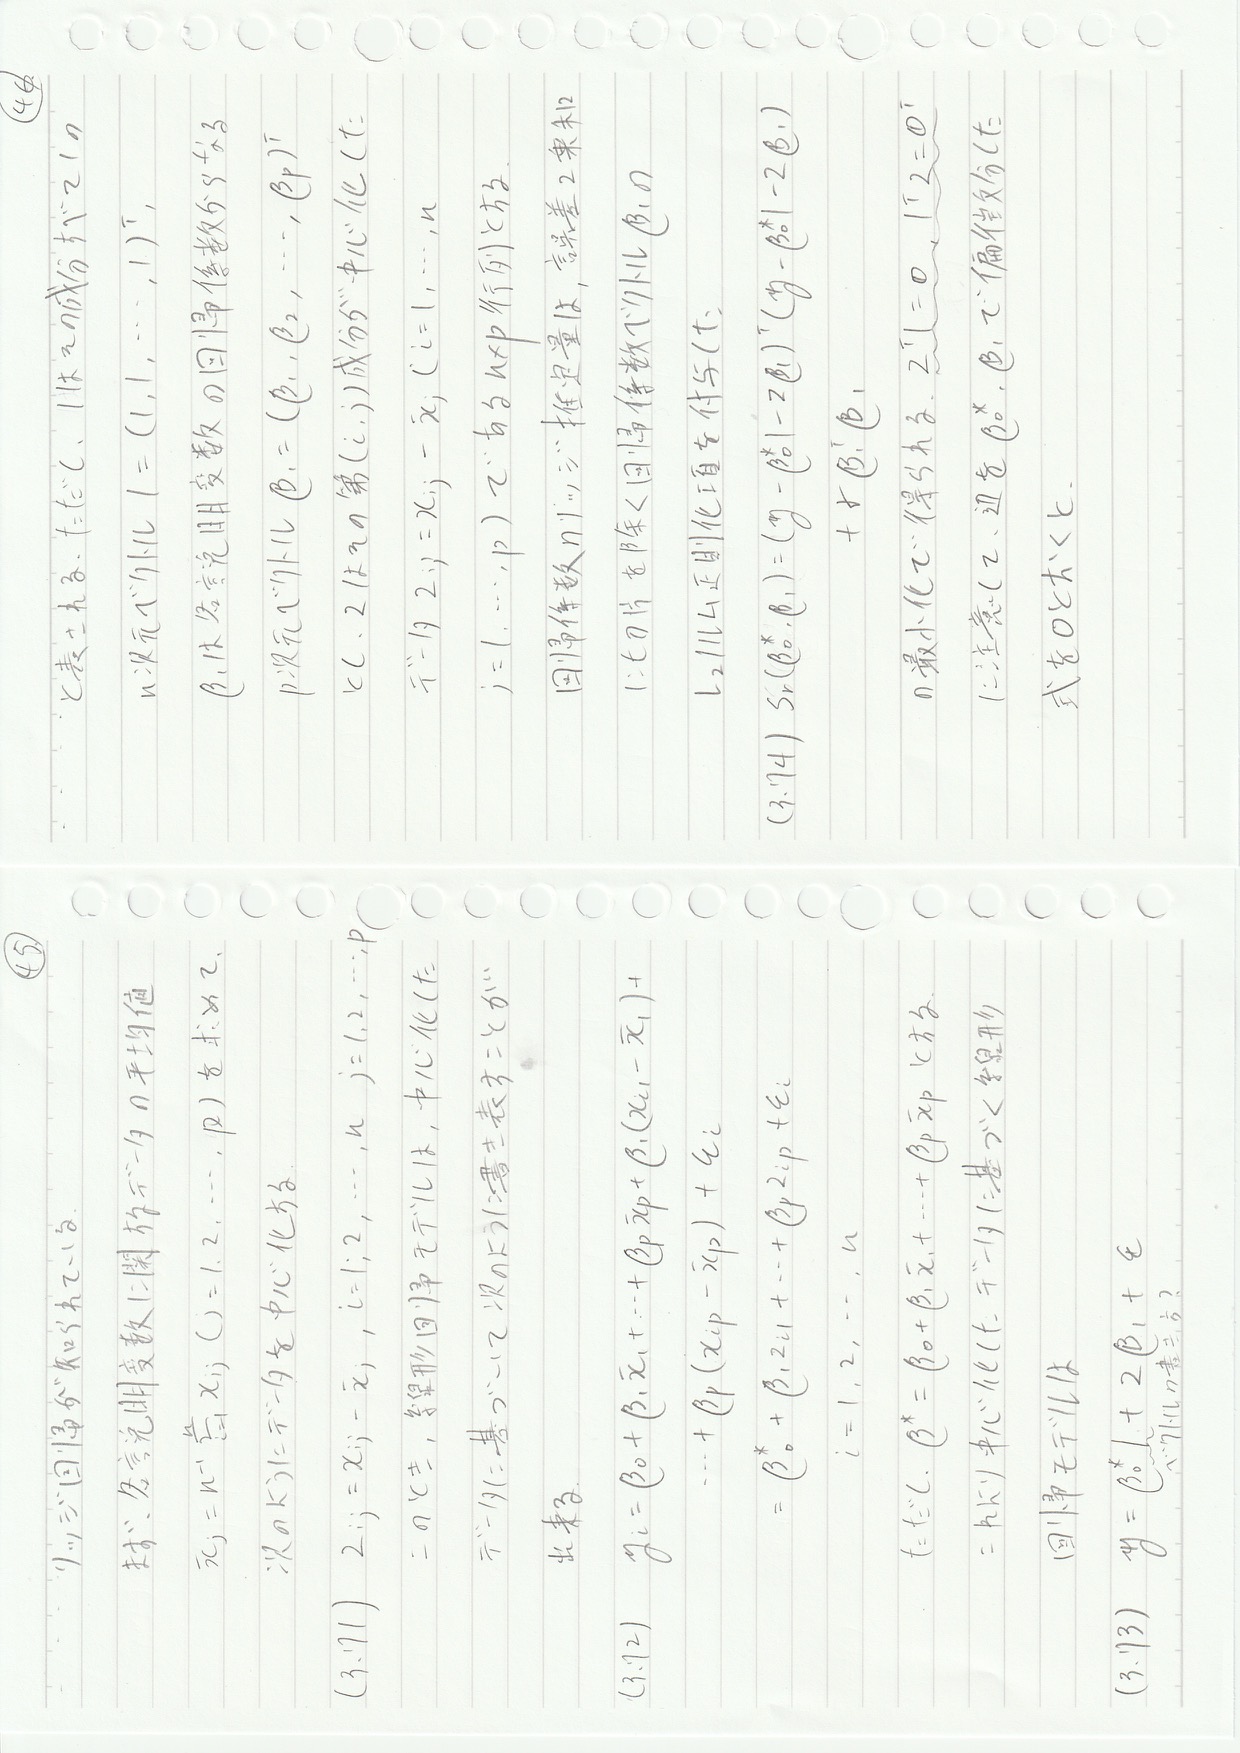 45
リッジ回帰が知られている.
まず、各説明変数に関するデータの平均値
x̄j = n⁻¹ Σⁿᵢ₌₁ xij (j=1.2.…,p)を求めて、
次のようにデータを中心化する
(3.71) zij = xij - x̄j , i=1,2,…,n j=1,2,…,p
このとき,線形回帰モデルは,中心化した
データに基づいて次のように書き表すことが
出来る
(3.72) yi = β0 + β1x̄1 +…+ βpx̄p + β1(xi1 - x̄1) +
… + βp(xip - x̄p) + εi
= β0* + β1zi1 + … + βpzip + εi
i = 1, 2, …, n
ただし. β* = β0 + β1x̄1 + … + βpx̄p とする.
これより中心化したデータに基づく線形
回帰モデルは
(3.73) y = β0*1 + Zβ1 + ε
ベクトルの書き方?
46
と表される.ただし、1はその成分すべて1の
n次元ベクトル 1 = (1,1,…,1)ᵀ,
β1は各説明変数の回帰係数からなる
p次元ベクトル β1 = (β1,β2,…,βp)ᵀ
とし、Zはその第(i,j)成分が中心化した
データ zij = xij - x̄j (i=1,…,n
j=1,…,p)であるn×p行列とする.
回帰係数のリッジ推定量は,誤差2乗和に
に切片を除く回帰係数ベクトルβ1の
L2ノルム正則化項を付与した
(3.74) Sr(β0*,β1) = (y - β0*1 - Zβ1)ᵀ(y - β0*1 - Zβ1)
+ γβ1ᵀβ1
の最小化で得られる. Zᵀ1=0, 1ᵀZ=0ᵀ
に注意して、辺をβ0*,β1で偏微分した
式を0とおくと.